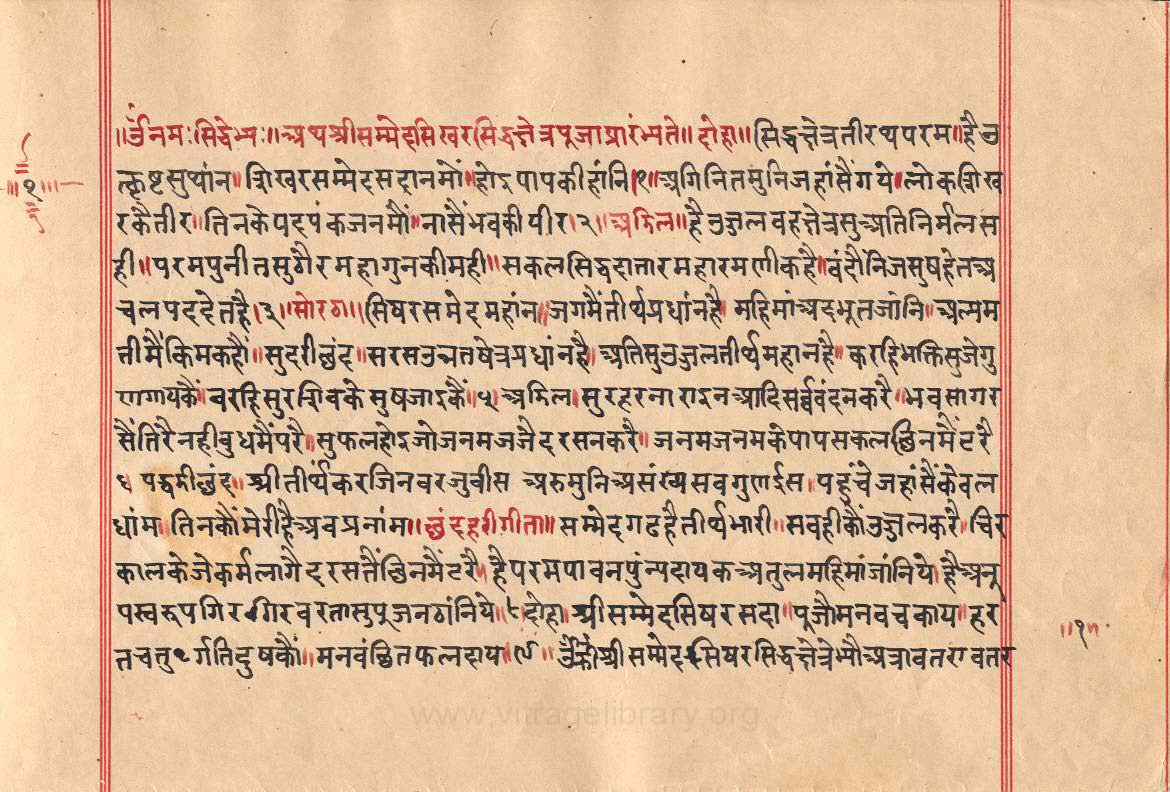 ॥ॐनमःसिद्धेभ्यः॥अथश्रीसम्मेदसिखरसिद्धक्षेत्रपूजाप्रारंभ्यते॥दोहा॥सिद्धक्षेत्रतीरथपरम॥हैउ
त्कृष्टसुथांन॥शिखरसम्मेदसदानमों॥होइपापकीहांनि।१॥अगिनितमुनिजहांसैंगये॥लोकशिख
रकैतीर॥तिनकेपदपंकजनमौं॥नासैंभवकीपीर।२॥अडिल॥हैउज्जलवहक्षेत्रसुअतिनिर्मलस
ही॥परमपुनीतसुठौरमहागुनकीमही॥सकलसिद्धदातारमहारमणीकहै॥वंदौंनिजसुषहेतअ
चलपददेतहै।३॥सोरठा॥सिषरसमेदमहांन॥जगमैंतीर्थप्रधांनहै॥महिमांअदभूतजांनि॥अल्पम
तीमैंकिमकहौं॥सुदरीछंद॥सरसउन्नतषेत्रप्रधांनहै॥अतिसुउज्जलतीर्थमहानहै॥करहिभक्तिसुजेगु
णगायकैं॥वरहिसुरशिवकेसुषजाइकैं॥५॥अडिल॥सुरहरनाराइनआदिसर्ववंदनकरै॥भवसागर
सैंतिरैनहीवुधमैंपरै॥सुफलहोइजोजनमजजैदरसनकरै॥जनमजनमकेपापसकलछिनमैंटरै
६पद्धडीछंद॥श्रीतीर्थंकरजिनवरजुवीस अरुमुनिअसंख्यसवगुणईस॥पहुंचेजहांसैंकेवल
धांम॥तिनकौंमेरीहैअवप्रनांम॥छंदहरीगीता॥सम्मेदगढहैतीर्थभारी॥सवहीकौंउज्जलकरै॥चिर
कालकेजेकर्मलागैदरसतैंछिनमैंटरै॥हैपरमपावनपुंन्यदायकअतुलमहिमांजांनिये॥हैअनू
पस्वरूपगिरगिरवरतासुपूजनठांनिये॥८दोहा॥श्रीसम्मेदसिषरसदा॥पूजौमनवचकाय॥हर
तचतुर्गतिदुषकौं॥मनवंछितफलदाय॥९॥ॐह्रींश्रीसम्मेदसिषरसिद्धक्षेत्रेभ्यौअत्रावतरावतर
॥१॥
॥१॥
www.vitragelibrary.org